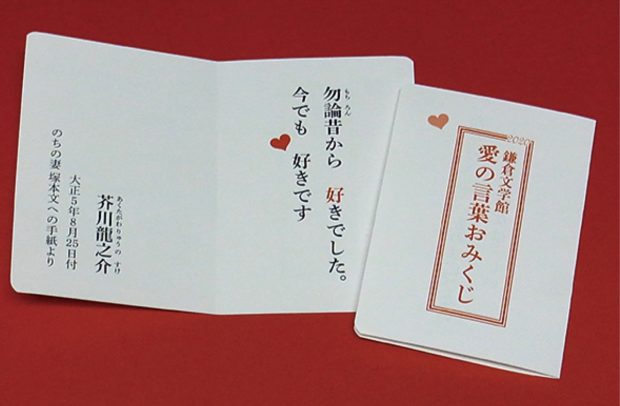 勿論昔から 好きでした。
今でも 好きです
もちろん
芥川龍之介
あくたがわりゅうのすけ
大正5年8月25日付
のちの妻 塚本文への手紙より
2020
鎌倉文学館
愛の言葉おみくじ